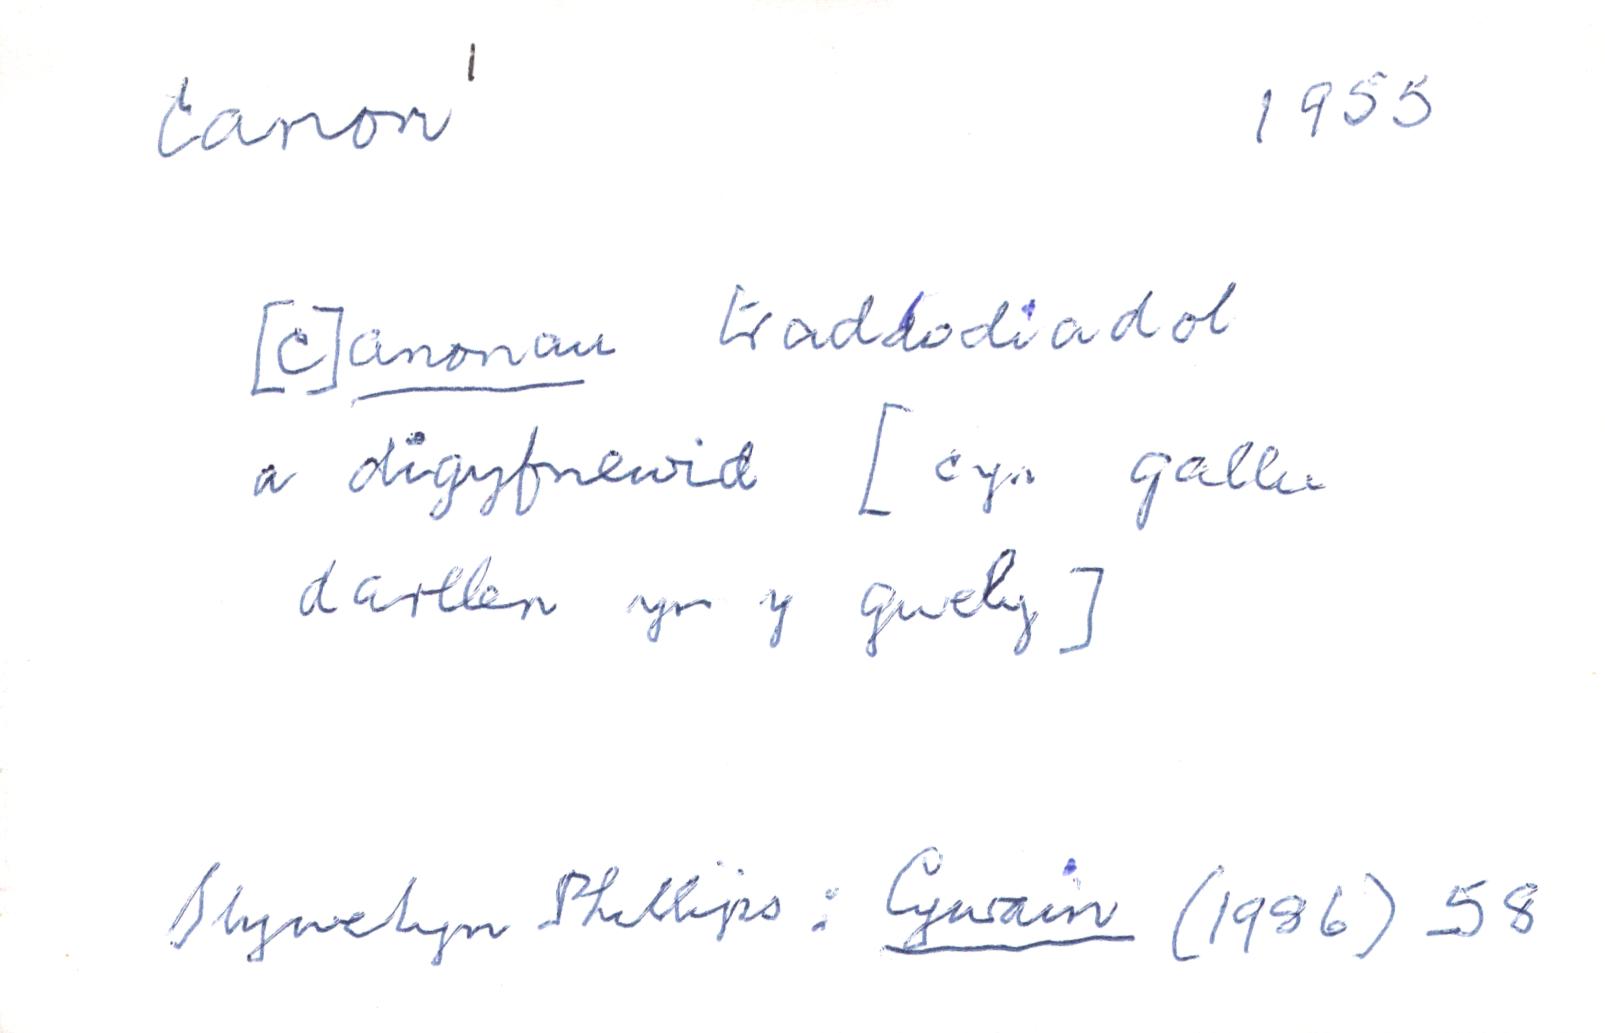 Canon¹ 1955
[c]anonau traddodiadol
a digyfnewid [cyn gallu
darllen yn y gwely]
Llywelyn Phillips: Cywain (1986) 58